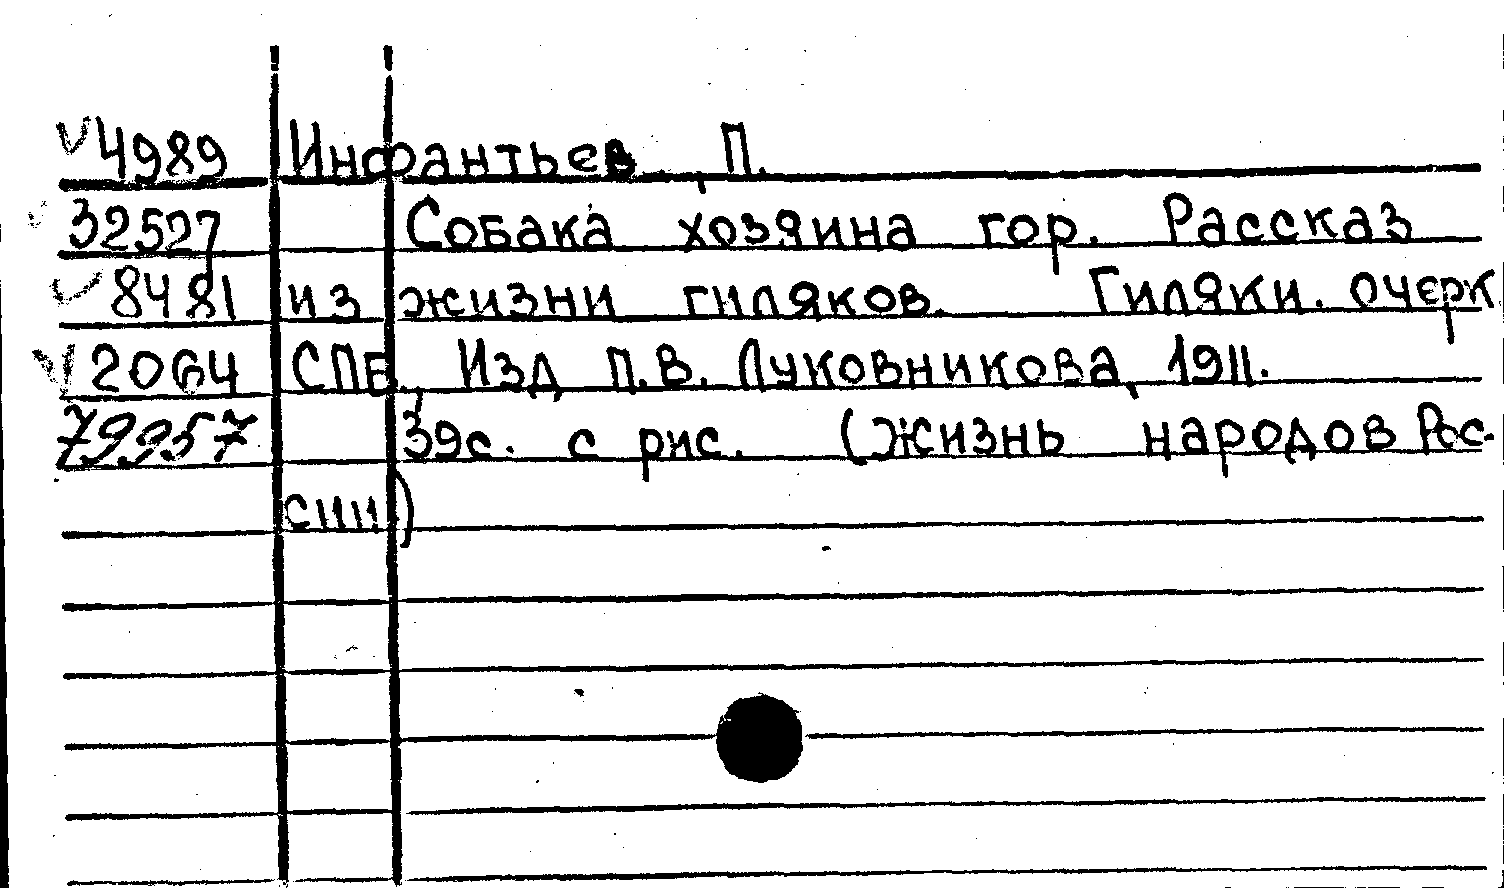 ✓4989 Инфантьев, П.
✓32527 Собака хозяина гор. Рассказ
✓8481 из жизни гиляков. Гиляки. очерк
✓2064 СПБ., Изд П.В. Луковникова, 1911.
79957 39с. с рис. (Жизнь народов Рос-
сии)